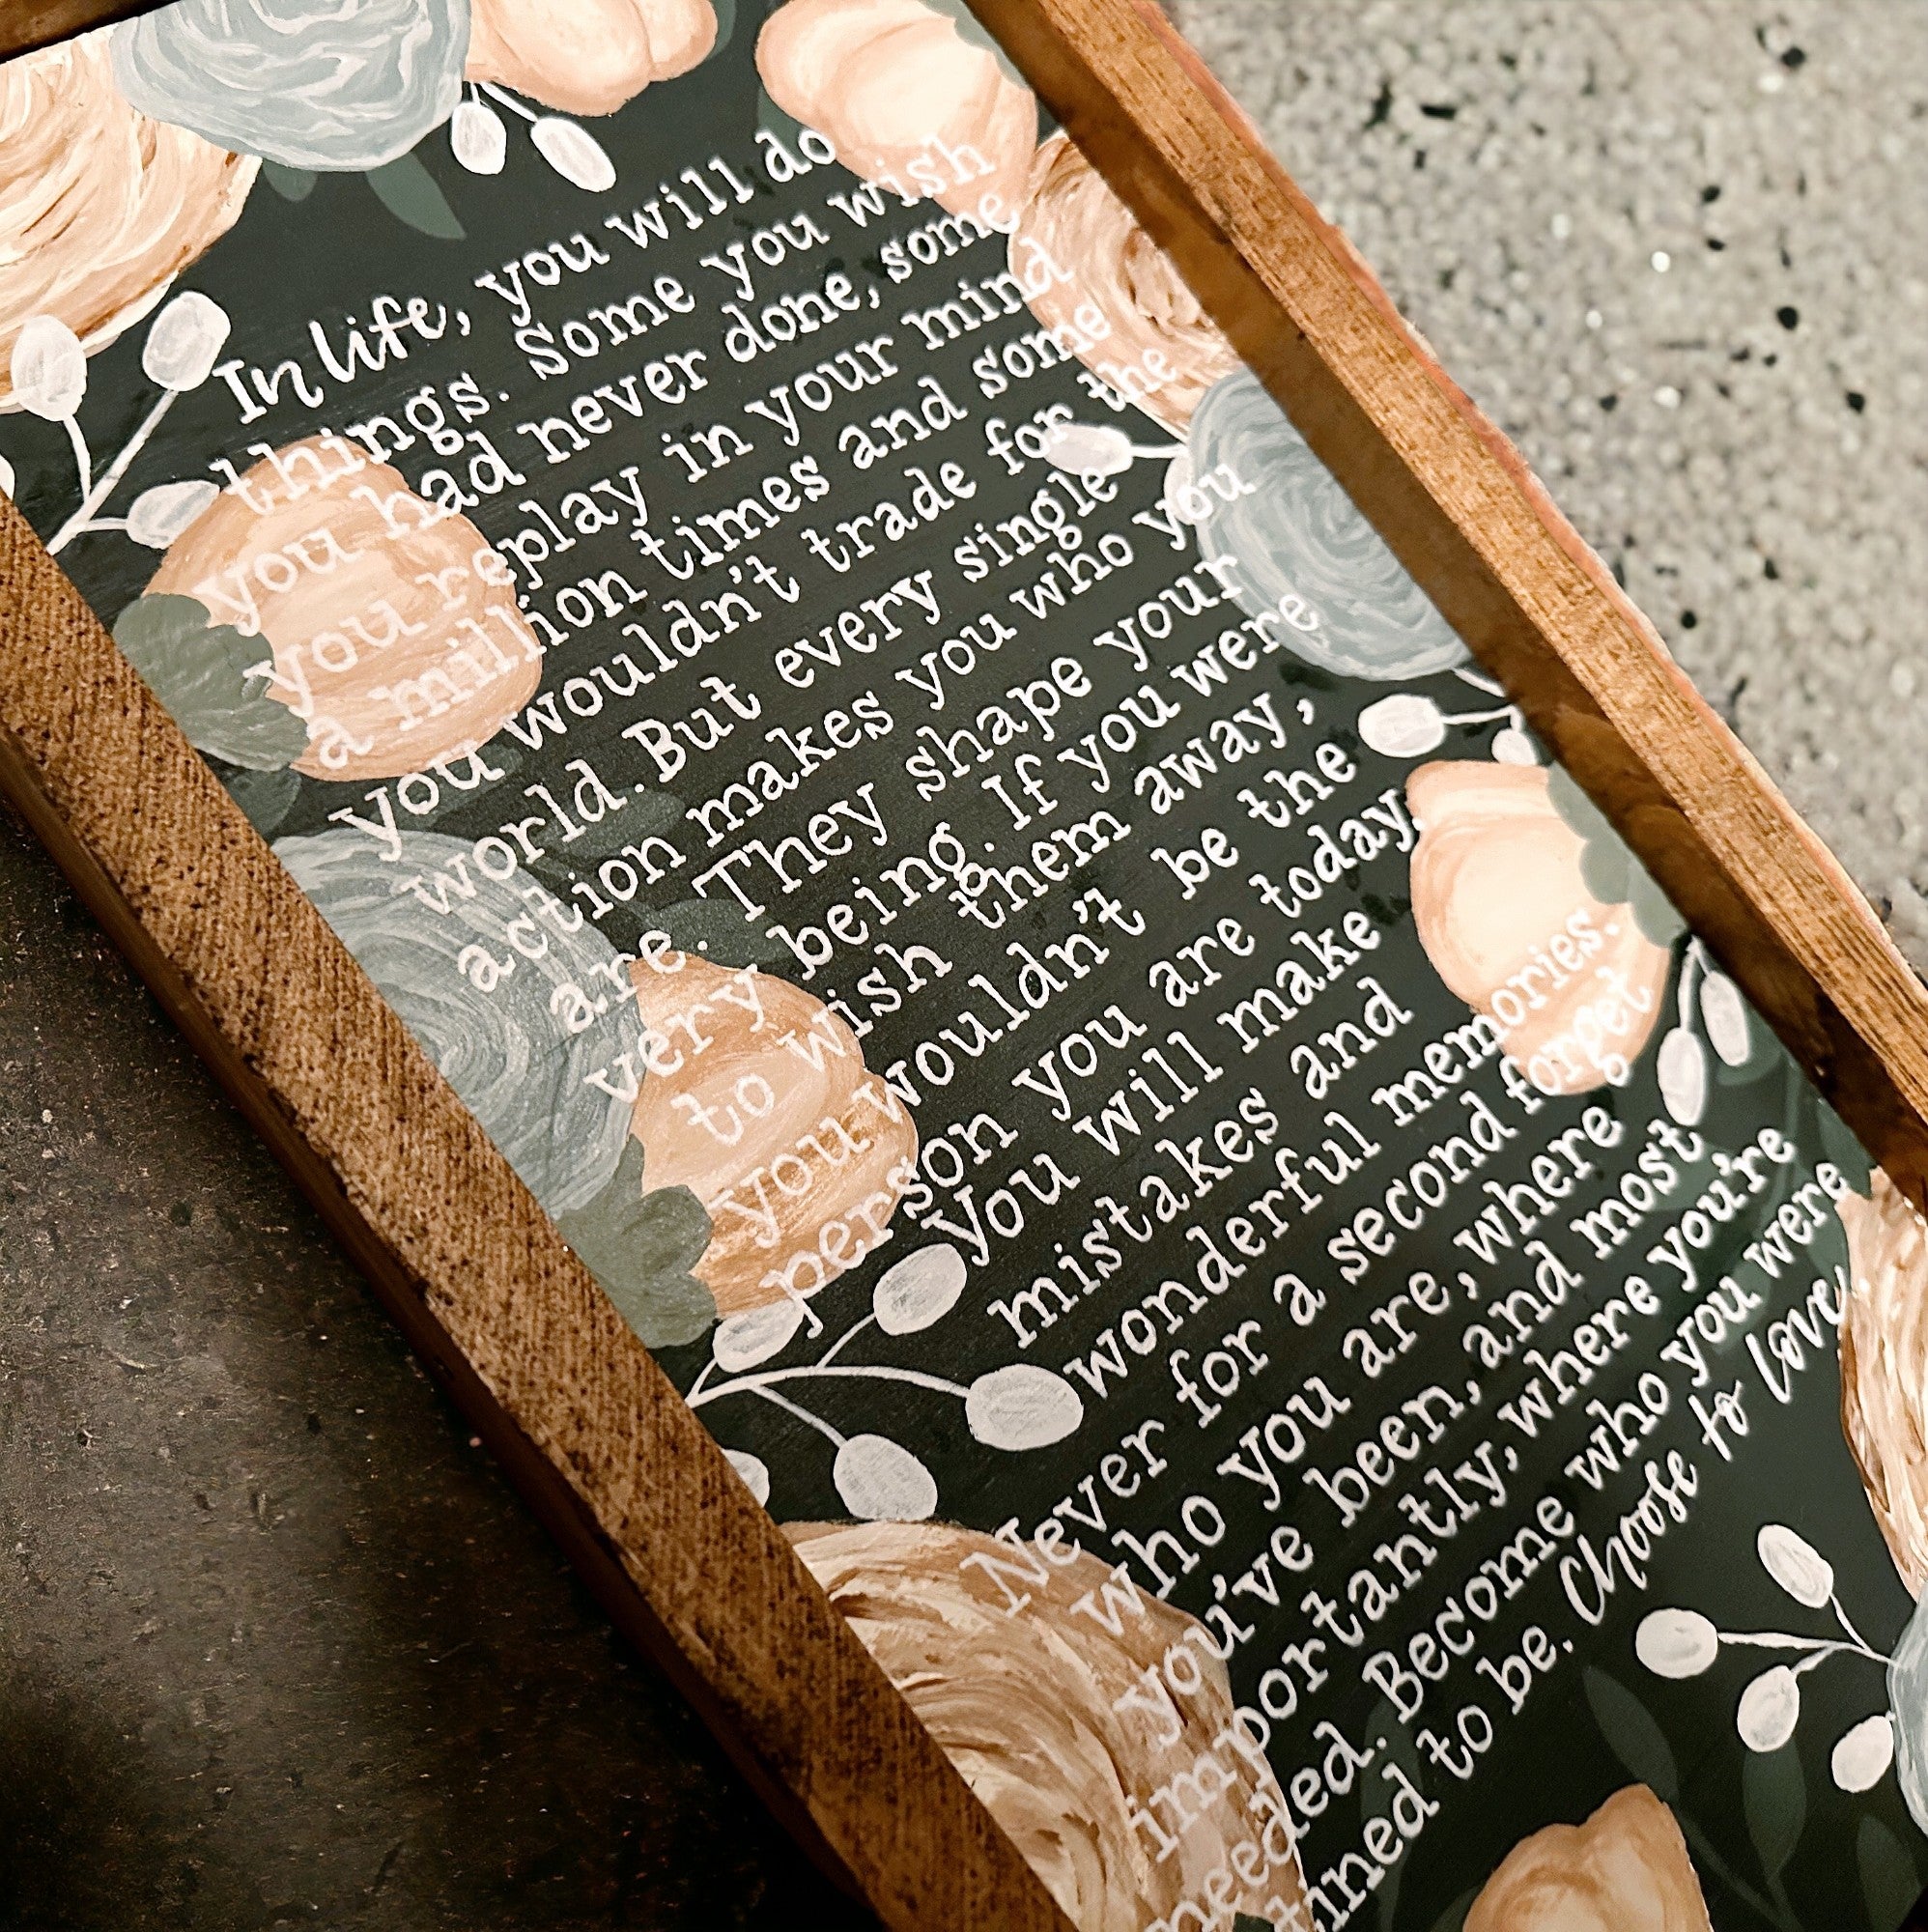 In life, you will do
things. Some you wish
you had never done, some
you replay in your mind
a million times and some
you wouldn't trade for the
world. But every single
action makes you who you
are. They shape your
very being. If you were
to wish them away,
you wouldn't be the
person you are today.
You will make
mistakes and
wonderful memories.
Never for a second forget
who you are, where
you've been, and most
importantly, where you're
needed. Become who you were
tined to be. Choose to love.